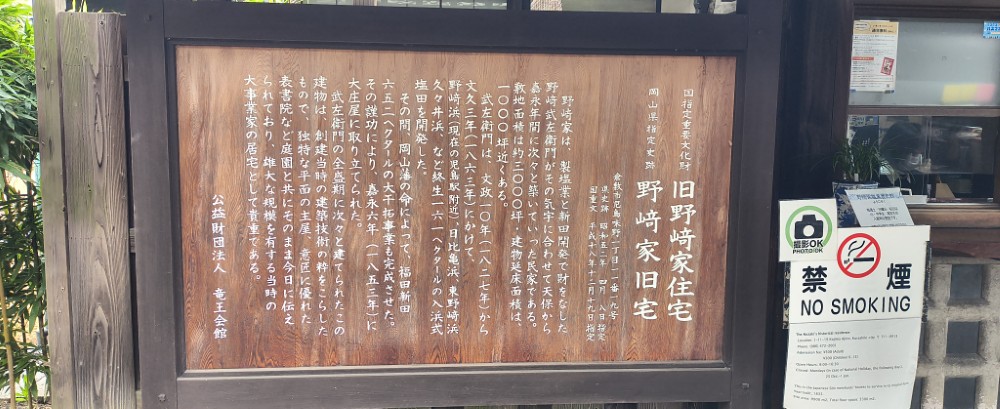 国指定重要文化財
旧野﨑家住宅
岡山県指定史跡
野﨑家旧宅
倉敷市児島味野一丁目一一番一九号
県史跡 昭和五二年 四月 八日指定
国重文 平成十八年十二月十九日指定
野﨑家は、製塩業と新田開発で財をなした
野﨑武左衛門がその気宇に合わせて天保から
嘉永年間に次々と築いていった民家である。
敷地面積は約三〇〇〇坪・建物延床面積は、
一〇〇〇坪近くある。
武左衛門は、文政一〇年(一八二七年)から
文久三年(一八六三年)にかけて、
野﨑浜(現在の児島駅附近)日比亀浜、東野﨑浜
久々井浜、など終生一六一ヘクタールの入浜式
塩田を開発した。
その間、岡山藩の命によって、福田新田
六五二ヘクタールの大干拓事業も完成させた。
その謹功により、嘉永六年(一八五三年)に
大庄屋に取り立てられた。
武左衛門の全盛期に次々と建てられたこの
建物は、創建当時の建築技術の粋をこらした
もので、独特な平面の主屋、意匠に優れた
表書院など庭園と共にそのまま今日に伝え
られており、雄大な規模を有する当時の
大事業家の居宅として貴重である。
公益財団法人 竜王会館
撮影OK
PHOTO OK
禁煙
NO SMOKING